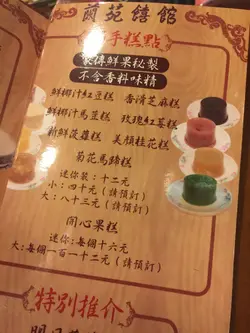 蘭苑饎館
手糕點
家傳鮮果秘製
不含香料味精
鮮椰汁紅荳糕 香滑芝麻糕
鮮椰汁馬荳糕 玫瑰紅莓糕
新鮮淮雜糕 美顏桂花糕
菊花馬蹄糕
迷你裝：十二元
小：四十元（請預訂）
大：八十三元（請預訂）
開心果糕
迷你：每個十六元
大：每個一百一十二元（請預訂）
特別推介